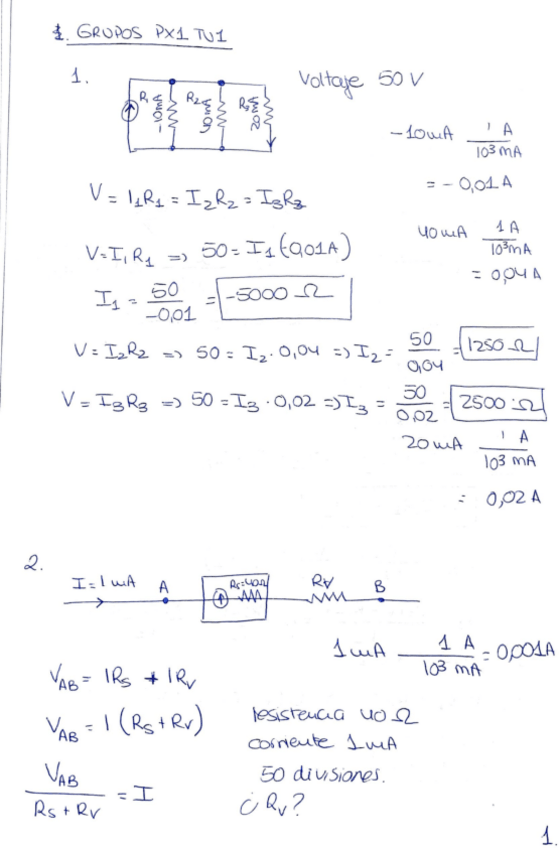 1. GRUPOS PX1 TU1
1.
Voltaje 50 V
R₁
R₂
R₃
-10mA 1 A / 10³ mA
= -0,01 A
V = I₁R₁ = I₂R₂ = I₃R₃
40mA 1 A / 10³mA
= 0,04 A
V=I₁R₁ => 50 = I₁(-0,01A)
I₁ = 50 / -0,01 = -5000 Ω
V=I₂R₂ => 50 = I₂·0,04 => I₂ = 50 / 0,04 = 1250 Ω
V=I₃R₃ => 50 = I₃·0,02 => I₃ = 50 / 0,02 = 2500 Ω
20mA 1 A / 10³ mA
= 0,02 A
2.
I=1mA A Rs=40Ω Rv B
1mA 1 A / 10³ mA = 0,001A
V_AB = IRs + IRv
V_AB = I (Rs+Rv)
V_AB / Rs+Rv = I
resistencia 40 Ω
corriente 1mA
50 divisiones.
¿Rv?
1